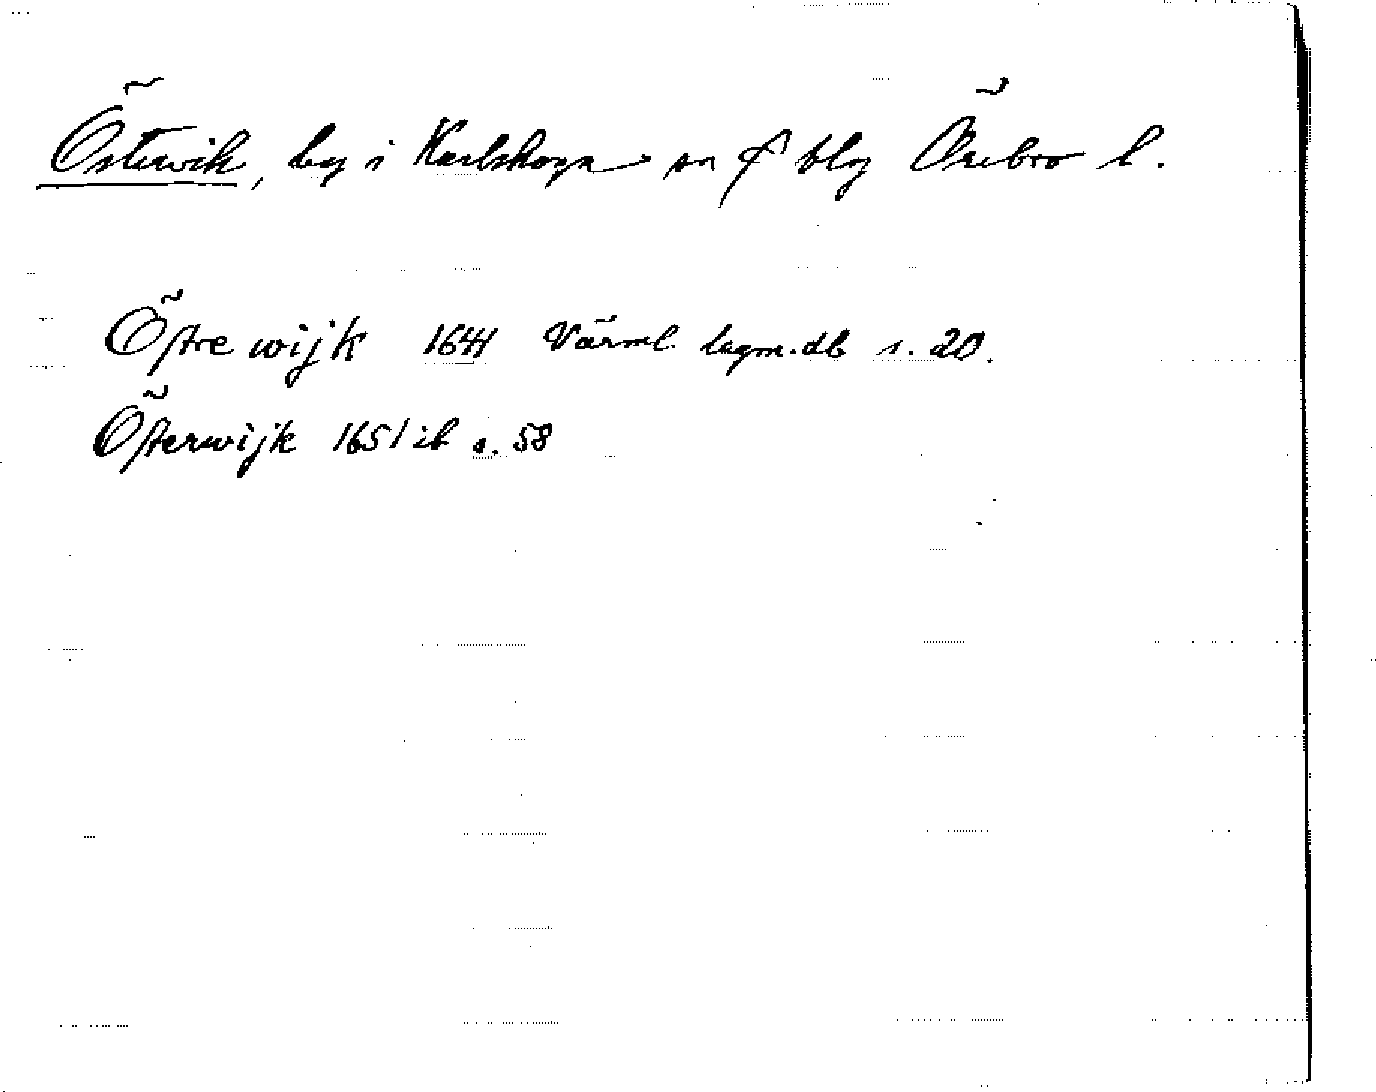 Östervik, by i Karlskoga sn f blg Örebro l.
Öſtre wijk 1641 Värml. lagm.db s. 20.
Öſterwijk 1651 ib s. 58